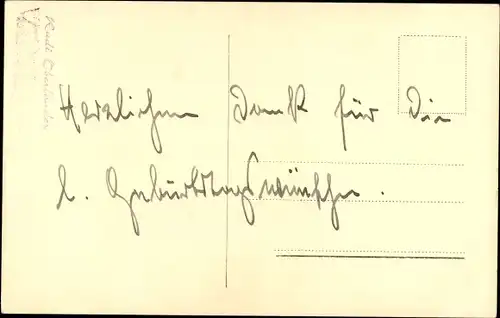 Herzlichen Dank für Die
l. Geburtstagswünsche.
Rudi Oberlander